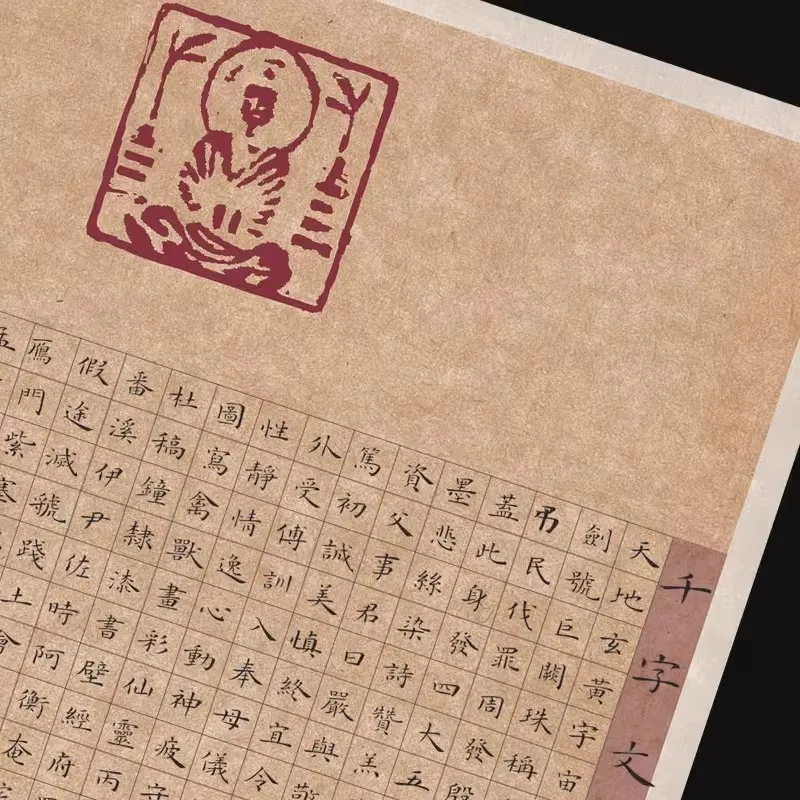 千字文
天地玄黃宇宙
劍號巨闕珠稱
弔民伐罪周發殷
蓋此身發四大五
墨悲絲染詩贊羔
資父事君曰嚴與敬
篤初誠美慎終宜令
外受傅訓入奉母儀
性靜情逸心動神疲守
圖寫禽獸畫彩仙靈丙
杜稿鐘隸漆書壁經府
番溪伊尹佐時阿衡奄
假途滅虢踐土會
鴈門紫塞